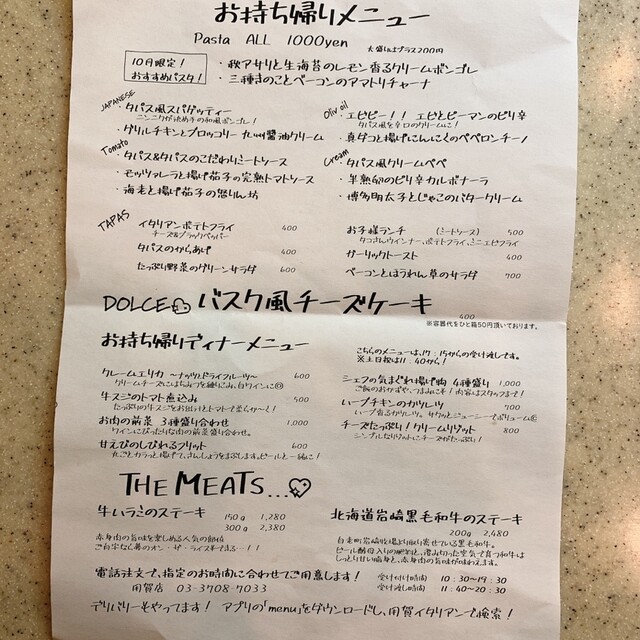 お持ち帰りメニュー
Pasta ALL 1000yen 大盛りはプラス200円
10月限定！
おすすめパスタ！
・秋アサリと生海苔のレモン香るクリームボンゴレ
・三種きのことベーコンのアマトリチャーナ
JAPANESE
・タパス風スパゲッティー
ニンニクが決め手の和風ボンゴレ！
・グリルチキンとブロッコリー 九州醤油クリーム
Tomato
・タパス&タパスのこだわりミートソース
・モッツァレラと揚げ茄子の完熟トマトソース
・海老と揚げ茄子の怒りん坊
Olive oil
・エビピー！！ エビとピーマンのピリ辛
タパス風を辛口のクリームに！
・真ダコと揚げにんにくのペペロンチーノ
Cream
・タパス風クリームペペ
・半熟卵のピリ辛カルボナーラ
・博多明太子とじゃこのバタークリーム
TAPAS
イタリアンポテトフライ 400
チーズ&ブラックペッパー
タパスのからあげ 400
たっぷり野菜のグリーンサラダ 600
お子様ランチ (ミートソース) 500
タコさんウインナー、ポテトフライ、ミニエビフライ
ガーリックトースト 400
ベーコンとほうれん草のサラダ 700
DOLCE バスク風チーズケーキ 400
※容器代をひと箱50円頂いております。
お持ち帰りディナーメニュー
こちらのメニューは、17：15からの受け渡しです。
※土日祝は11：40から！
クレームエリカ ～ナッツとドライフルーツ～ 600
牛スジのトマト煮込み 500
たっぷりの牛スジをお出汁とトマトで柔らか～く！
お肉の前菜 3種盛り合わせ 1,000
ワインにぴったりな肉の前菜盛り合わせ。
甘えびのしびれるフリット 600
丸ごとカラッと揚げて、さんしょうをまぶします。ビールと一緒に！
シェフの気まぐれ揚げ物 4種盛り 1,000
ご飯のおかずや、つまみに！ 内容はスタッフまで！
ハーブチキンのカツレツ 700
チーズたっぷり！クリームリゾット 800
シンプルなリゾットにチーズがたっぷり！
THE MEATS...
牛ハラミのステーキ 150g 1,280
300g 2,380
赤身肉の旨味を楽しめる人気の部位
ご自宅なら夢のオン・ザ・ライスまでも…！！
北海道岩崎黒毛和牛のステーキ
200g 2,480
白老町岩崎牧場より取り寄せている黒毛和牛。
ビール酵母入りの肥料と、澄み切った空気で育つ和牛は
しっとり甘い脂身と、赤身肉の旨味が味わえます。
電話注文で、指定のお時間に合わせてご用意します！
用賀店 03-3708-7033
受け付け時間 10：30～19：30
受け渡し時間 11：40～20：30
デリバリーもやってます！ アプリの「menu」をダウンロードし、用賀イタリアンで検索！